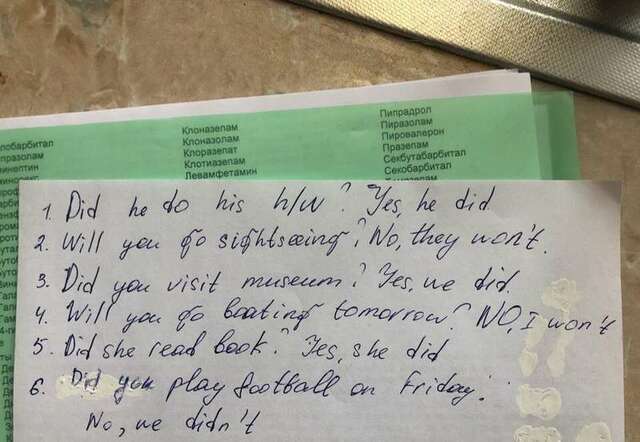 Клоназепам
Клоназолам
Клоразепат
Клотиазепам
Левамфетамин
Пипрадрол
Пиразолам
Пировалерон
Празепам
Секбутабарбитал
Секобарбитал
1. Did he do his h/w? Yes, he did.
2. Will you go sightseeing? No, they won't.
3. Did you visit museum? Yes, we did.
4. Will you go boating tomorrow? NO, I won't
5. Did she read book? Yes, she did
6. Did you play football on Friday?
No, we didn't